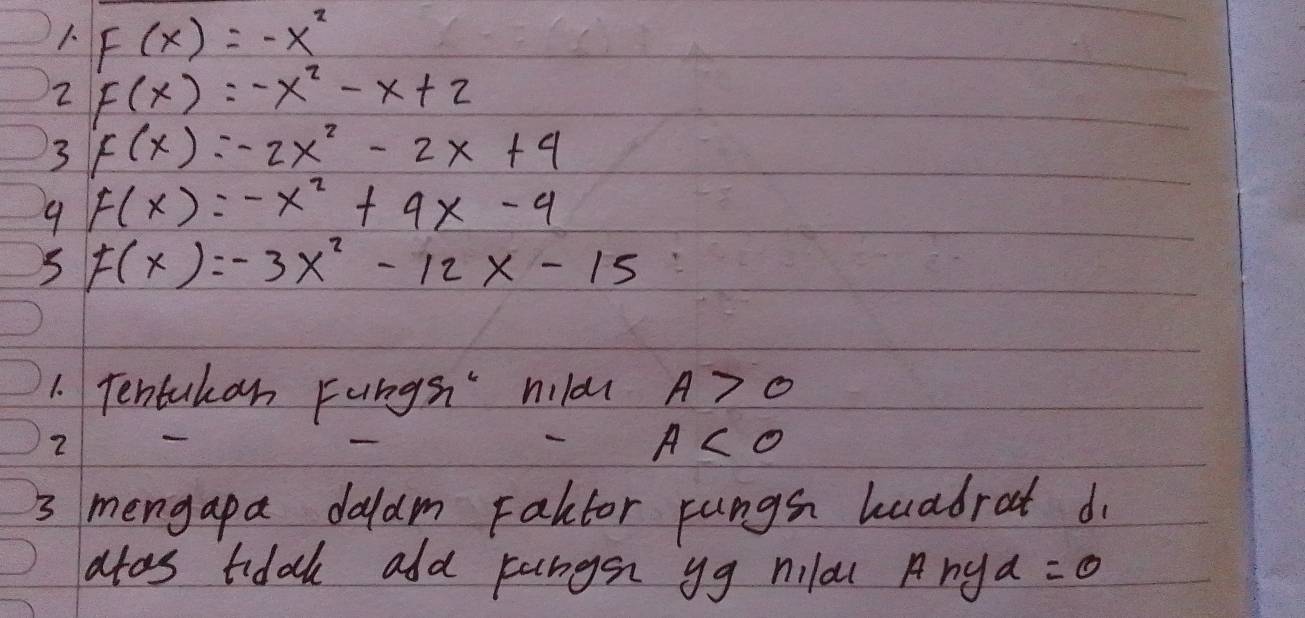 1. F(x) = -x²
2 F(x) = -x² - x + 2
3 F(x) = -2x² - 2x + 4
4 F(x) = -x² + 4x - 4
5 F(x) = -3x² - 12x - 15
1. Tentukan fungsi" nilai A > 0
2 - - - A < 0
3 mengapa dalam Faktor fungsi kuadrat di
atas tidak ada fungsi yg nilai Anya = 0